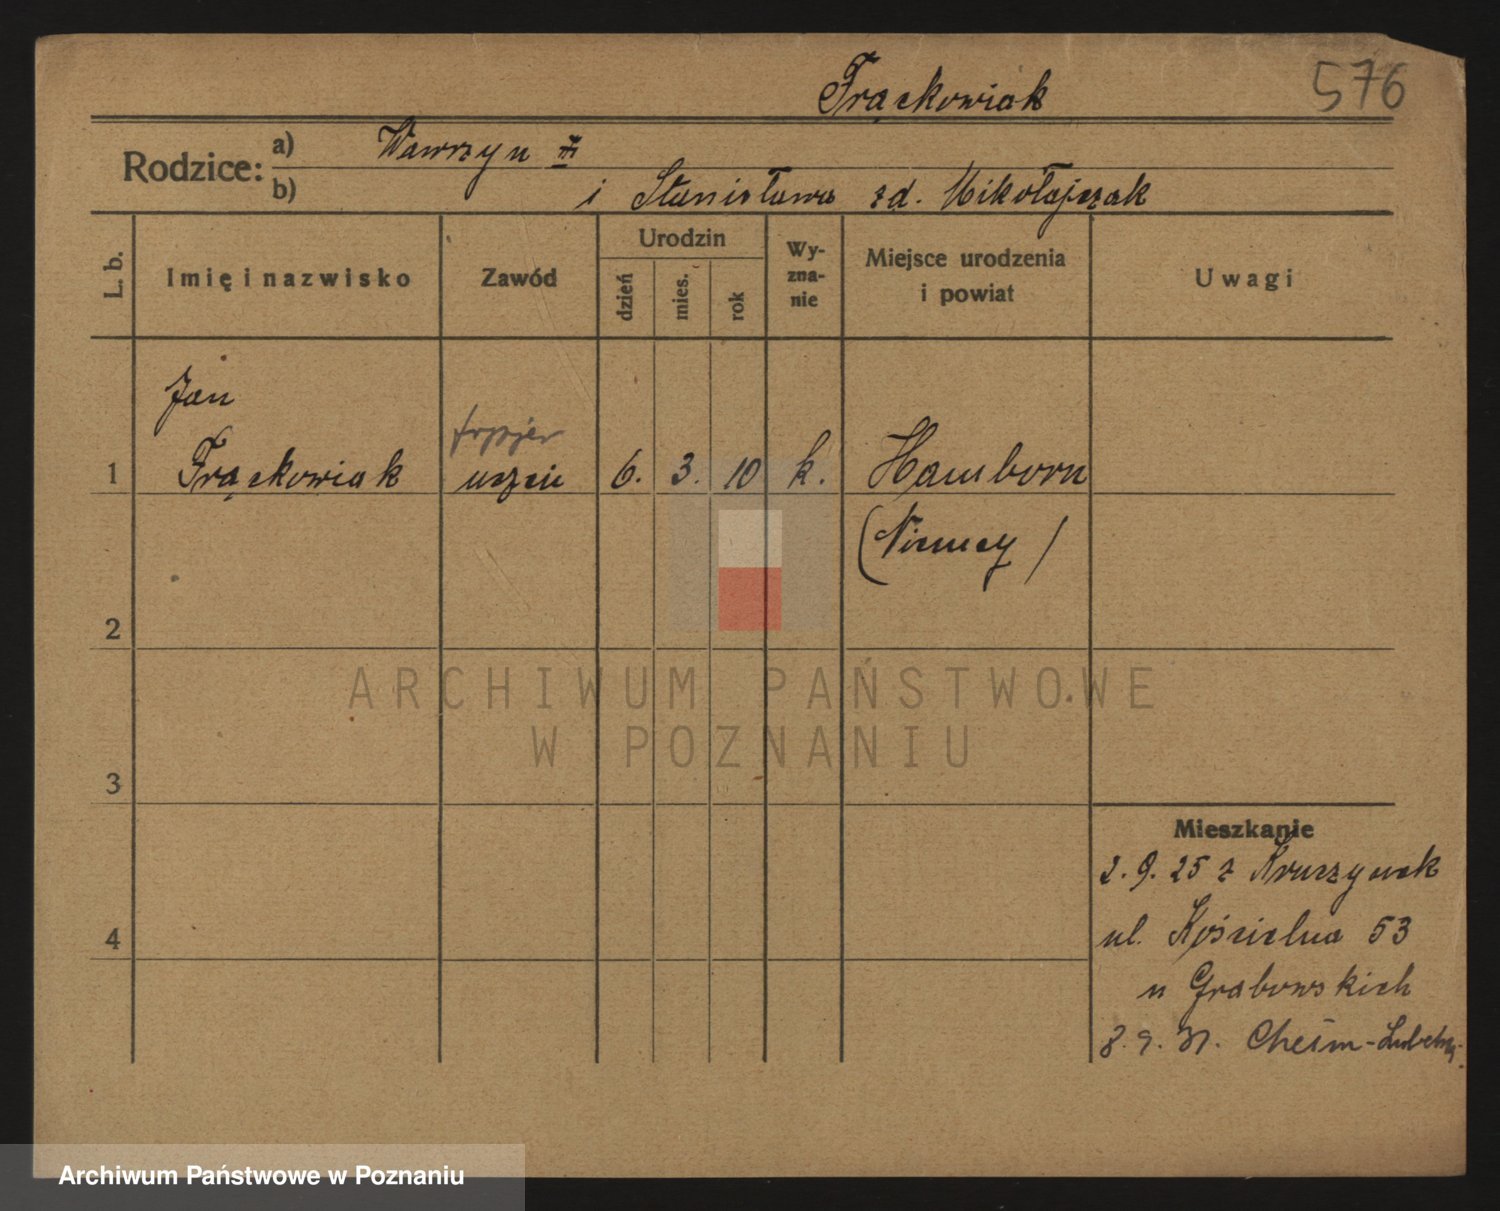 Frąckowiak 576
Rodzice: a) Wawrzyn
b) i Stanisława zd. Mikołajczak
L. b. Imię i nazwisko Zawód Urodzin dzień mies. rok Wyznanie Miejsce urodzenia i powiat Uwagi
Jan
fryzjer
1 Frąckowiak uczeń 6. 3. 10 k. Hamborn
(Niemcy)
2
ARCHIWUM PAŃSTWOWE
W POZNANIU
3
Mieszkanie
2. 9. 25 z Kruszynek
4 ul. Kościelna 53
u Grabowskich
8. 9. 31. Chełm-Lubelski
Archiwum Państwowe w Poznaniu